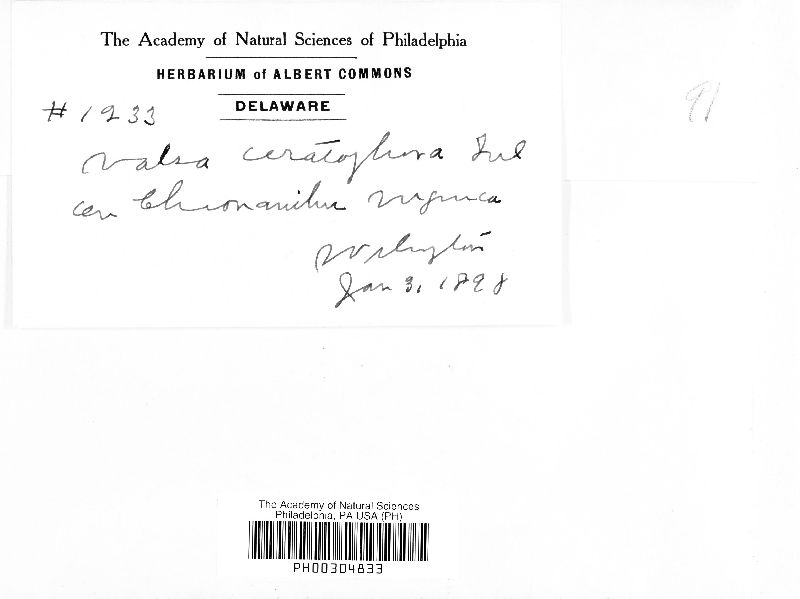 The Academy of Natural Sciences of Philadelphia
HERBARIUM of ALBERT COMMONS
DELAWARE
# 1233
91
Valsa ceratophora Tul
on Chionanthus virginica
Wilmington
Jan 3, 1898
The Academy of Natural Sciences
Philadelphia, PA USA (PH)
PH00304833